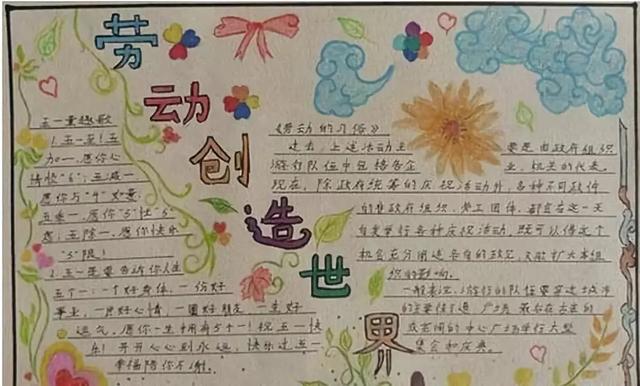 劳动创造世界
五一童趣歌
1.五一至!五
加一,愿你心
情快"6";五减一
愿你与"4"如意;
五乘一,愿你"5"忧"5"
虑;五除一,愿你快乐
"5"限!
2.五一是要告诉你人生
五个一:一个好身体,一份好
事业,一片好心情,一圈好朋友,一生好
运气,愿你一生拥有5个一!祝五一快
乐!开开心心到永远,快乐过五一
幸福陪你不溜。
《劳动的习俗》
过去,上述活动主要是由政府组织
游行队伍中包括各企业、机关的代表。
现在,除政府统筹的庆祝活动外,各种不同政件
的非政府组织、劳工团体,都会在这一天
自发举行各种庆祝活动,既可以借这个
机会充分阐述各自的政见,又能扩大本组
织的影响。
一般来说,游行的队伍要穿过城市
的主要街道、广场,最后在主要的
或空阔的中心广场举行大型
集会和庆典。